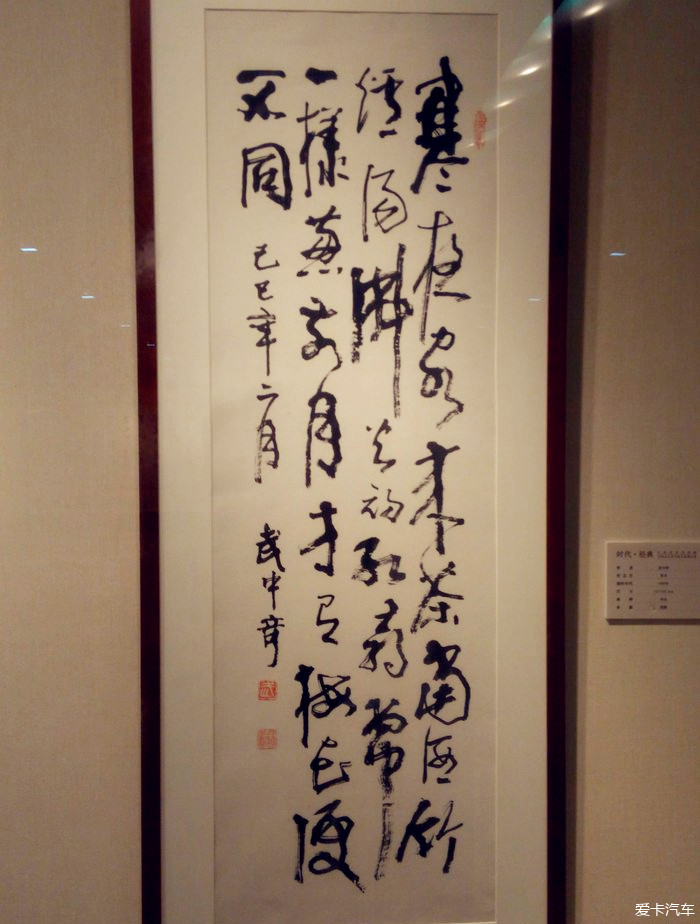 寒夜客来茶當酒竹
爐湯沸火初紅尋常
一樣窗前月才有梅花便
不同 己巳年二月 武中奇
时代·经典
爱卡汽车